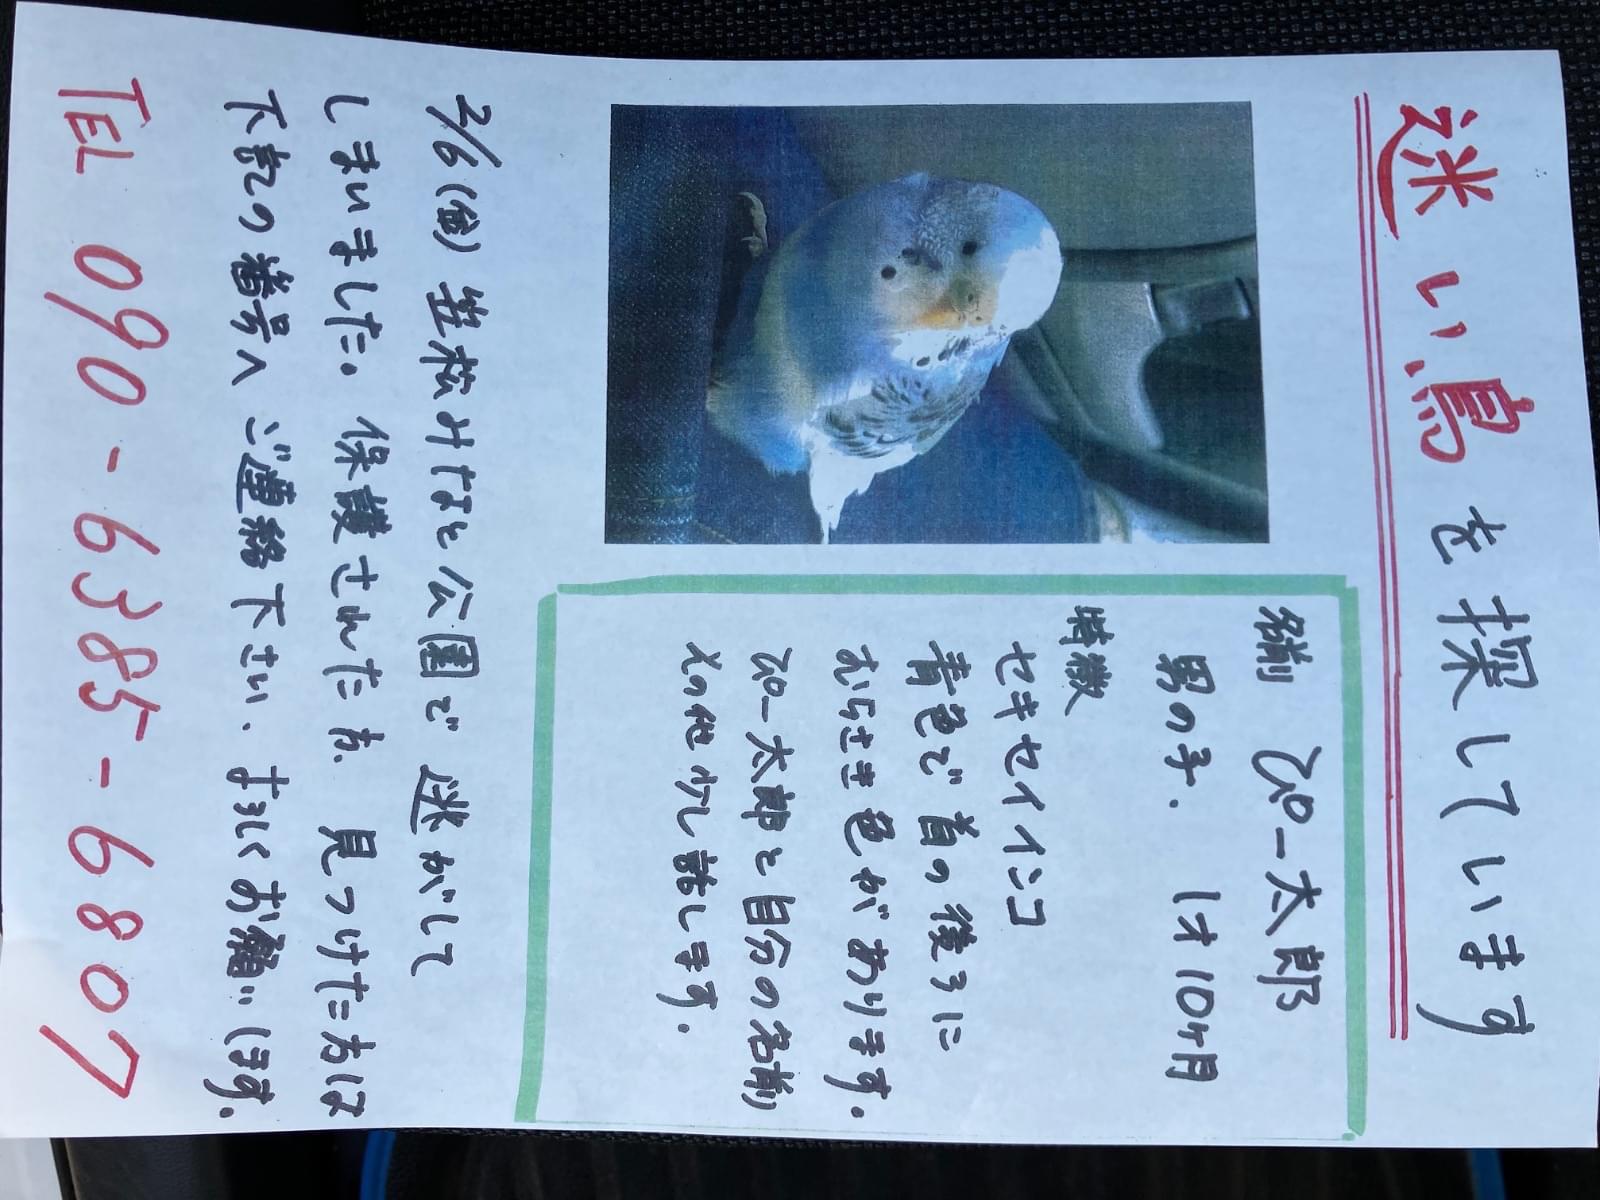 迷い鳥を探しています
名前 ぴー太郎
男の子. 1才10ヶ月
特徴
セキセイインコ
青色で首の後ろに
むらさき色があります。
ぴー太郎と自分の名前
その他少し話します.
2/6(金) 笠松みなと公園で迷がして
しまいました。保護された方、見つけた方は
下記の番号へご連絡下さい、よろしくお願いします。
TEL 090-6385-6807